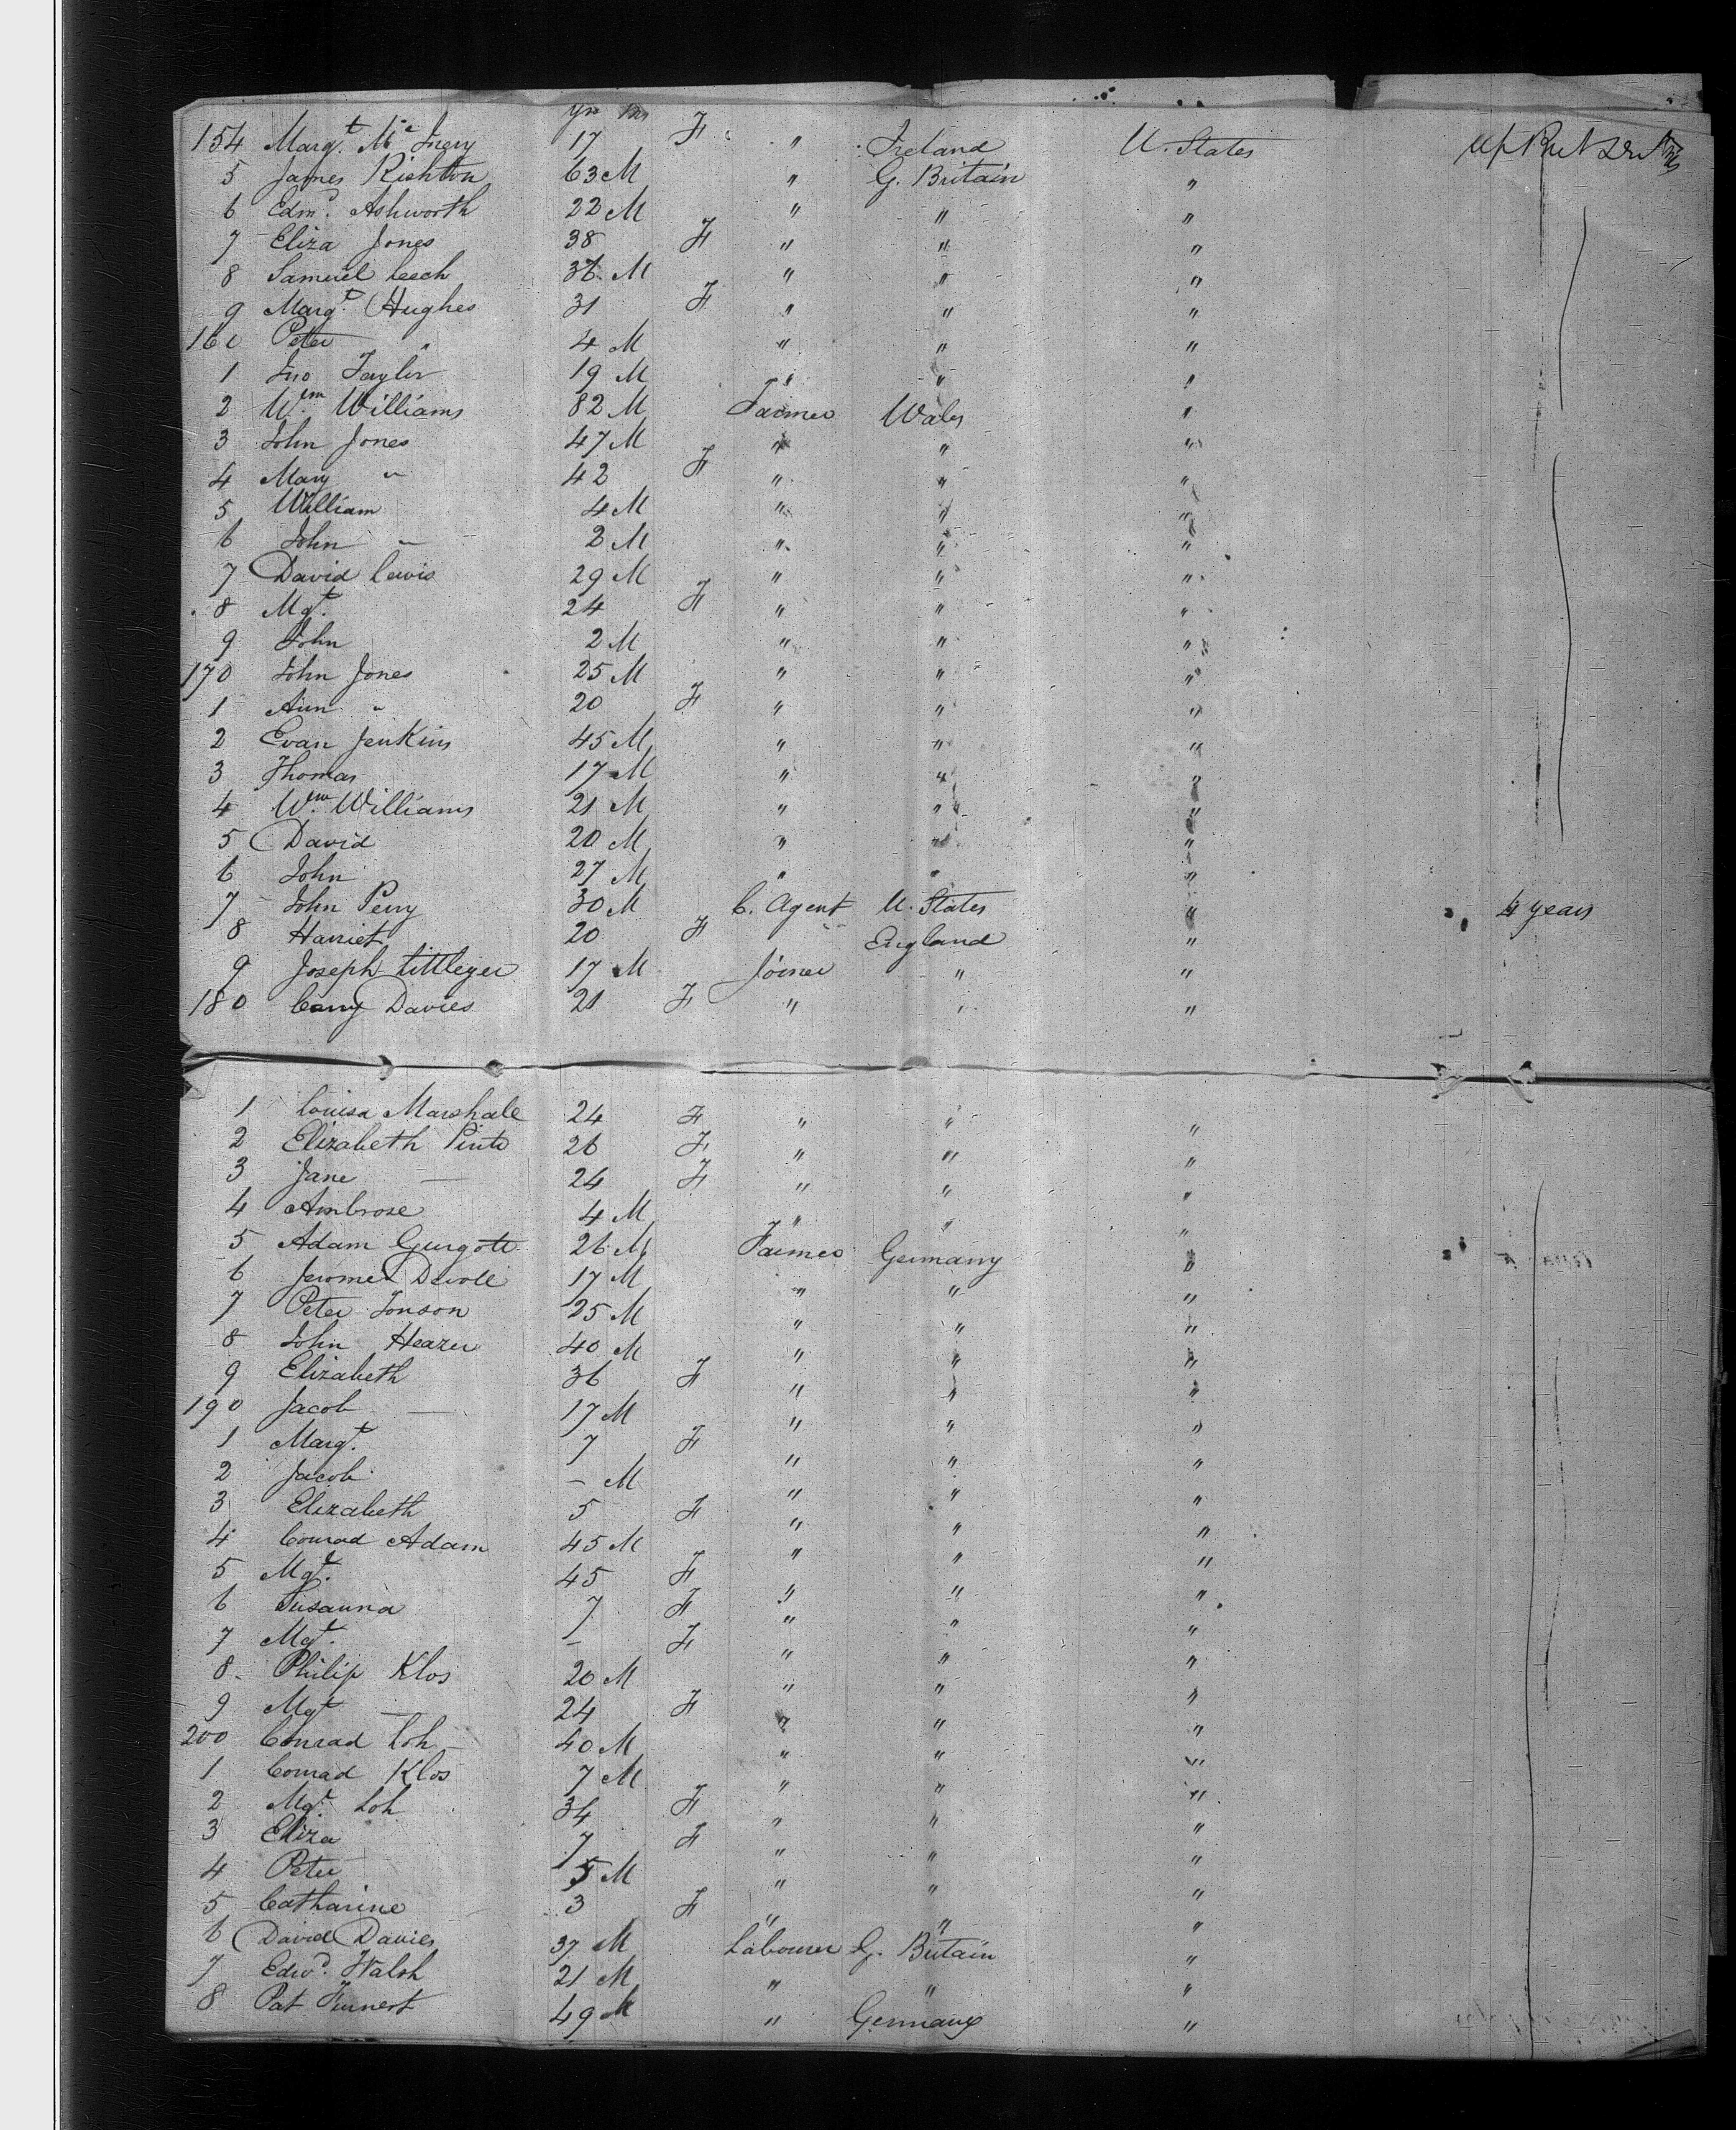 yrs ms
154 Margt. McInery 17 F " Ireland U. States
5 James Rishton 63 M " G. Britain "
6 Edmd. Ashworth 22 M " " "
7 Eliza Jones 38 F " " "
8 Samuel Leech 36 M " " "
9 Margt. Hughes 31 F " " "
160 Peter " 4 M " " "
1 Jno Taylor 19 M " " "
2 Wm. Williams 82 M Farmer Wales "
3 John Jones 47 M " " "
4 Mary " 42 F " " "
5 William 4 M " " "
6 John " 2 M " " "
7 David Lewis 29 M " " "
8 Mgt. 24 F " " "
9 John 2 M " " "
170 John Jones 25 M " " "
1 Ann " 20 F " " "
2 Evan Jenkins 45 M " " "
3 Thomas 17 M " " "
4 Wm. Williams 21 M " " "
5 David 20 M " " "
6 John 27 M " " "
7 John Perry 30 M C. Agent U. States " 4 years
8 Harriet 20 F " England "
9 Joseph Littleyer 17 M Joiner " "
180 Davies 21 F " " "
1 Louisa Marshall 24 F " " "
2 Elizabeth Pinto 26 F " " "
3 Jane — 24 F " " "
4 Ambrose 4 M " " "
5 Adam Gurgott 26 M Farmer Germany "
6 Jerome 17 M " " "
7 Peter Jonson 25 M " " "
8 John Heazer 40 M " " "
9 Elizabeth 36 F " " "
190 Jacob — 17 M " " "
1 Margt. 7 F " " "
2 Jacob - M " " "
3 Elizabeth 5 F " " "
4 Conrad Adam 45 M " " "
5 Mgt. 45 F " " "
6 Susanna 7 F " " "
7 Mgt. - F " " "
8 Philip Klos 20 M " " "
9 Mgt — 24 F " " "
200 Conrad Loh 40 M " " "
1 Conrad Klos 7 M " " "
2 Mgt. Loh 34 F " " "
3 Eliza 7 F " " "
4 Peter 5 M " " "
5 Catharine 3 F " " "
6 David Davies 37 M Labourer G. Britain "
7 Edwd. Walsh 21 M " " "
8 Pat 49 M " Germany "